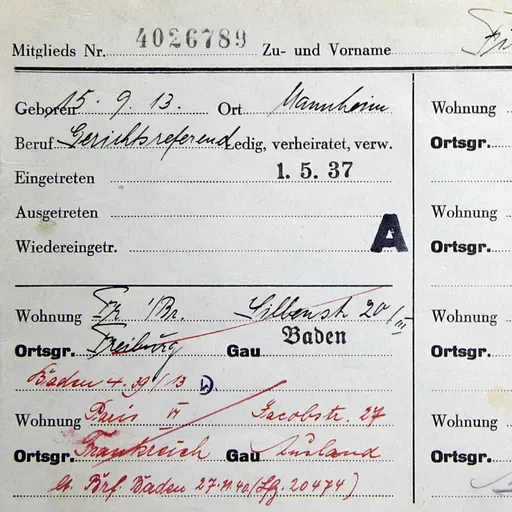 Mitglieds Nr. 4026789 Zu- und Vorname
Geboren 15. 9. 13. Ort Mannheim
Beruf Gerichtsreferend Ledig, verheiratet, verw.
Eingetreten 1. 5. 37
Ausgetreten
Wiedereingetr. A
Wohnung Fr. /Br. Silberst. 20/III
Ortsgr. Freiburg Gau Baden
Baden 4. 39/13
Wohnung Paris VI Jacobstr. 27
Ortsgr. Frankreich Gau Ausland
lt. Brf. Baden 27.11.40 (Lfg. 20474)
Wohnung
Ortsgr.
Wohnung
Ortsgr.
Wohnung
Ortsgr.
Wohnung
Ortsgr.